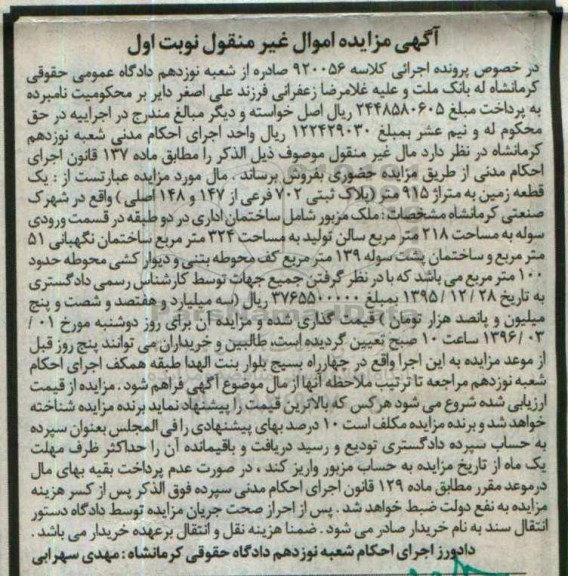 آگهی مزایده اموال غیر منقول نوبت اول
در خصوص پرونده اجرائی کلاسه ۹۲۰۰۵۶ صادره از شعبه نوزدهم دادگاه عمومی حقوقی
کرمانشاه له بانک ملت و علیه غلامرضا زعفرانی فرزند علی اصغر دایر بر محکومیت نامبرده
به پرداخت مبلغ ۲۴۴۸۵۸۰۶۰۵ ریال اصل خواسته و دیگر مبالغ مندرج در اجراییه در حق
محکوم له و نیم عشر بمبلغ ۱۲۲۴۲۹۰۳۰ ریال واحد اجرای احکام مدنی شعبه نوزدهم
کرمانشاه در نظر دارد مال غیر منقول موصوف ذیل الذکر را مطابق ماده ۱۳۷ قانون اجرای
احکام مدنی از طریق مزایده حضوری بفروش برساند . مال مورد مزایده عبارتست از : یک
قطعه زمین به متراژ ۹۱۵ متر (پلاک ثبتی ۷۰۲ فرعی از ۱۴۷ و ۱۴۸ اصلی ) واقع در شهرک
صنعتی کرمانشاه مشخصات : ملک مزبور شامل ساختمان اداری در دو طبقه در قسمت ورودی
سوله به مساحت ۲۱۸ متر مربع سالن تولید به مساحت ۳۲۴ متر مربع ساختمان نگهبانی ۵۱
متر مربع و ساختمان پشت سوله ۱۳۹ متر مربع کف محوطه بتنی و دیوار کشی محوطه حدود
۱۰۰ متر مربع می باشد که با در نظر گرفتن جمیع جهات توسط کارشناس رسمی دادگستری
به تاریخ ۲۸ / ۱۲ / ۱۳۹۵ بمبلغ ۳۷۶۵۵۰۰۰۰۰ ریال (سه میلیارد و هفتصد و شصت و پنج
میلیون و پانصد هزار تومان ) قیمت گذاری شده و مزایده آن برای روز دوشنبه مورخ ۰۱ /
۰۳ / ۱۳۹۶ ساعت ۱۰ صبح تعیین گردیده است، طالبین و خریداران می توانند پنج روز قبل
از موعد مزایده به این اجرا واقع در چهارراه بسیج بلوار بنت الهدا طبقه همکف اجرای احکام
شعبه نوزدهم مراجعه تا ترتیب ملاحظه آنها از مال موضوع آگهی فراهم شود . مزایده از قیمت
ارزیابی شده شروع می شود هر کس که بالاترین قیمت را پیشنهاد نماید برنده مزایده شناخته
خواهد شد و برنده مزایده مکلف است ۱۰ درصد بهای پیشنهادی را فی المجلس بعنوان سپرده
به حساب سپرده دادگستری تودیع و رسید دریافت و باقیمانده آن را حداکثر ظرف مهلت
یک ماه از تاریخ مزایده به حساب مزبور واریز کند ، در صورت عدم پرداخت بقیه بهای مال
در موعد مقرر مطابق ماده ۱۲۹ قانون اجرای احکام مدنی سپرده فوق الذکر پس از کسر هزینه
مزایده به نفع دولت ضبط خواهد شد . پس از احراز صحت جریان مزایده توسط دادگاه دستور
انتقال سند به نام خریدار صادر می شود . ضمنا هزینه نقل و انتقال بر عهده خریدار می باشد .
دادورز اجرای احکام شعبه نوزدهم دادگاه حقوقی کرمانشاه : مهدی سهرابی